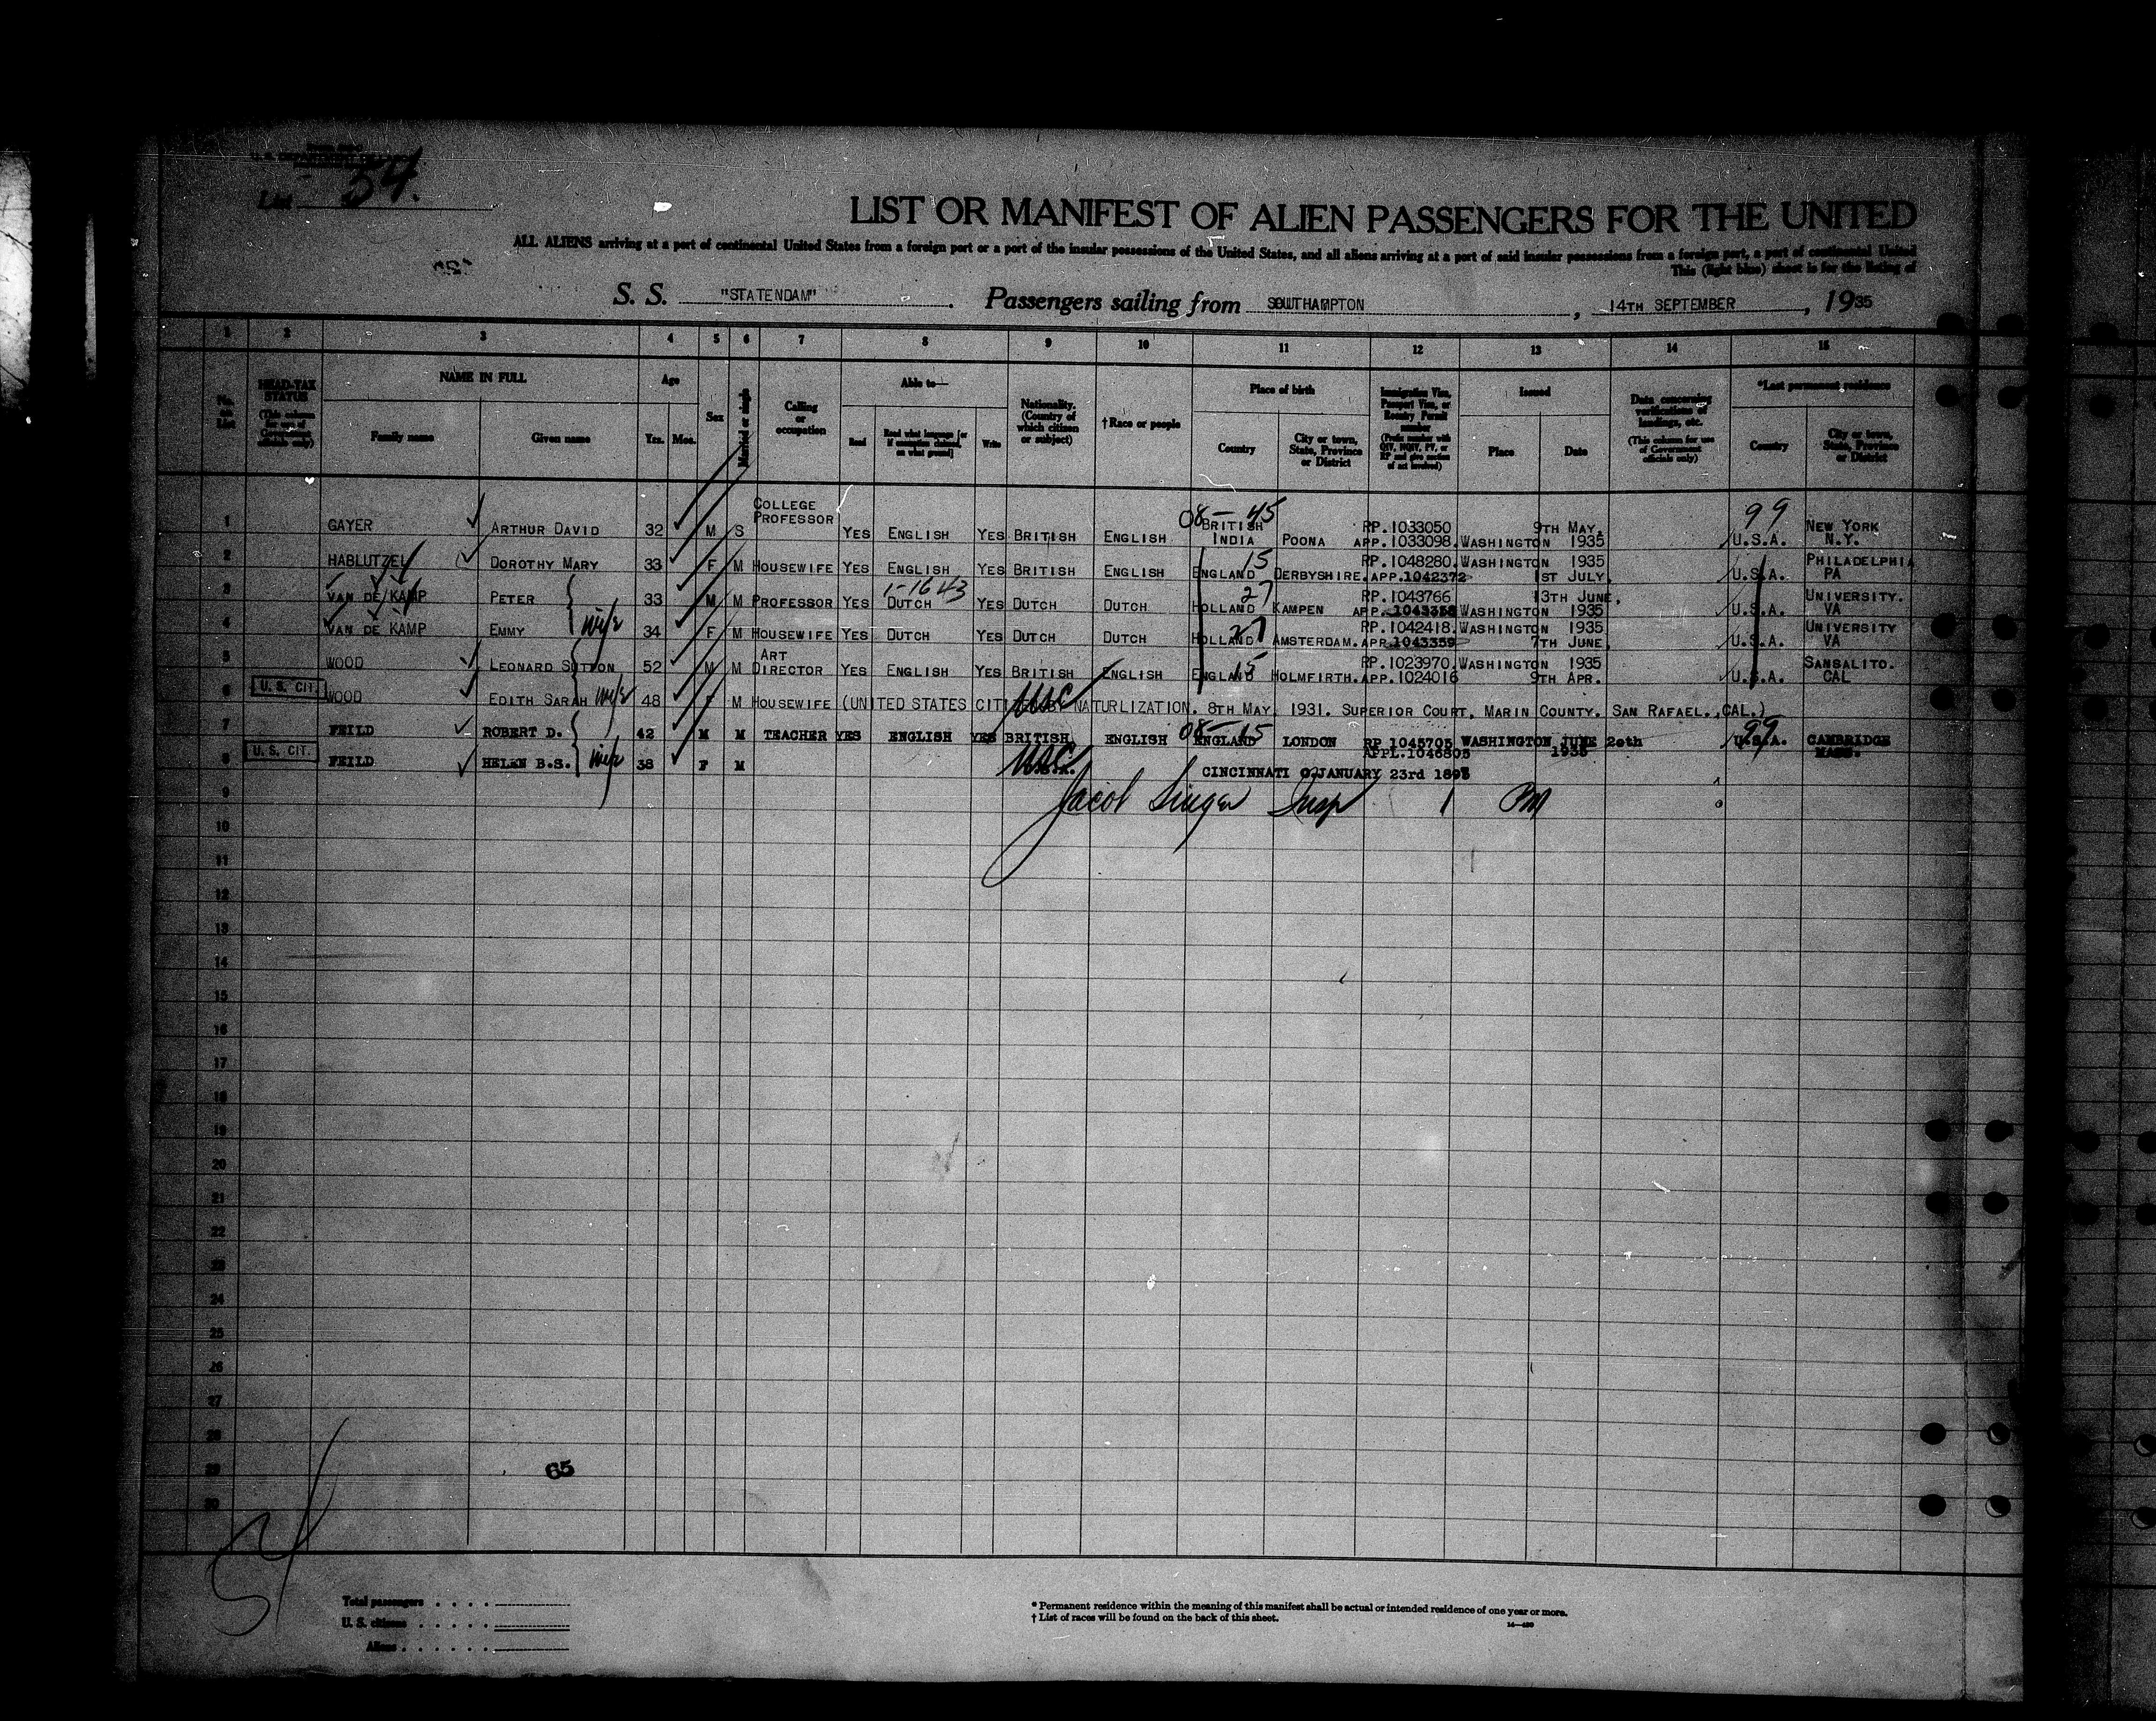 U. S. DEPARTMENT OF LABOR
List 54.
LIST OR MANIFEST OF ALIEN PASSENGERS FOR THE UNITED
ALL ALIENS arriving at a port of continental United States from a foreign port or a port of the insular possessions of the United States, and all aliens arriving at a port of said insular possessions from a foreign port, a port of continental United
This (light blue) sheet is for the listing of
S. S. "STATENDAM". Passengers sailing from SOUTHAMPTON, 14TH SEPTEMBER, 1935
1 2 3 4 5 6 7 8 9 10 11 12 13 14 15
No. on List
HEAD-TAX STATUS (This column for use of Government officials only)
NAME IN FULL
Family name
Given name
Age
Yrs. Mos.
Sex
Married or single
Calling or occupation
Able to—
Read
Read what language [or if exemption claimed, on what ground]
Write
Nationality. (Country of which citizen or subject)
†Race or people
Place of birth
Country
City or town, State, Province or District
Immigration Visa, Passport Visa, or Reentry Permit number
(Prefix number with QIV, NQIV, PV, or RP and give section of act involved)
Issued
Place
Date
Data concerning verifications of landings, etc.
(This column for use of Government officials only)
*Last permanent residence
Country
City or town, State, Province or District
1 GAYER ARTHUR DAVID 32 M S COLLEGE PROFESSOR YES ENGLISH YES BRITISH ENGLISH 08-45 BRITISH INDIA POONA RP.1033050 APP.1033098. WASHINGTON 9TH MAY, 1935 99 U.S.A. NEW YORK N.Y.
2 HABLUTZEL DOROTHY MARY 33 F M HOUSEWIFE YES ENGLISH YES BRITISH ENGLISH 15 ENGLAND DERBYSHIRE. RP.1048280. APP.1042372 WASHINGTON 1935 1ST JULY. U.S.A. PHILADELPHIA PA
3 VAN DE KAMP PETER 33 M M PROFESSOR YES 1-1643 DUTCH YES DUTCH DUTCH 27 HOLLAND KAMPEN RP.1043766 APP.1043358 WASHINGTON 13TH JUNE, 1935 U.S.A. UNIVERSITY. VA
4 VAN DE KAMP EMMY wife 34 F M HOUSEWIFE YES DUTCH YES DUTCH DUTCH 27 HOLLAND AMSTERDAM. RP.1042418. APP.1043359 WASHINGTON 1935 7TH JUNE. U.S.A. UNIVERSITY VA
5 WOOD LEONARD SUTTON 52 M M ART DIRECTOR YES ENGLISH YES BRITISH ENGLISH 15 ENGLAND HOLMFIRTH. RP.1023970. APP.1024016 WASHINGTON 1935 9TH APR. U.S.A. SANSALITO. CAL
6 U. S. CIT. WOOD EDITH SARAH wife 48 F M HOUSEWIFE (UNITED STATES CITIZEN BY NATURLIZATION. 8TH MAY, 1931. SUPERIOR COURT, MARIN COUNTY. SAN RAFAEL., CAL.) USC
7 FEILD ROBERT D. 42 M M TEACHER YES ENGLISH YES BRITISH ENGLISH 08-15 ENGLAND LONDON RP 1045705 APPL.1046805 WASHINGTON JUNE 20th 1935 99 U.S.A. CAMBRIDGE MASS.
8 U. S. CIT. FEILD HELEN B.S. wife 38 F M USC U.S.A. CINCINNATI O JANUARY 23rd 1897
9 Jacob Singer Insp 1 PM
10
11
12
13
14
15
16
17
18
19
20
21
22
23
24
25
26
27
28
29
30
65
54
Total passengers
U. S. citizens
Aliens
* Permanent residence within the meaning of this manifest shall be actual or intended residence of one year or more.
† List of races will be found on the back of this sheet.
14—480